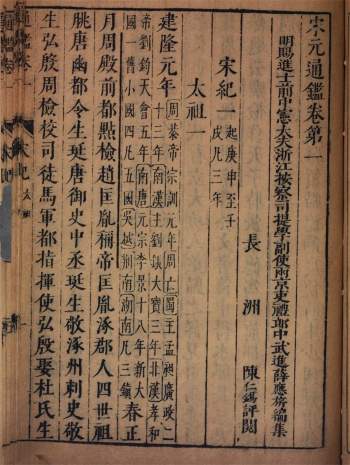 宋元通鑑卷第一
明賜進士前中憲大夫浙江按察司提學副使兩京吏禮部中武進薛應旂編集
長洲 陳仁錫評閱
宋紀一 起庚申至壬戌凡三年
太祖一
建隆元年 周恭帝宗訓元年周亡蜀主孟昶廣政二
十三年南漢主劉鋹大寶三年北漢孝和
帝劉鈞天會五年南唐元宗李景十八年新大
國一舊小國四凡五國吳越荊南湖南凡三鎮 春正
月周殿前都點檢趙匡胤稱帝匡胤涿郡人四世祖
朓唐幽都令生珽唐御史中丞珽生敬涿州刺史敬
生弘殷周檢校司徒馬軍都指揮使弘殷娶杜氏生